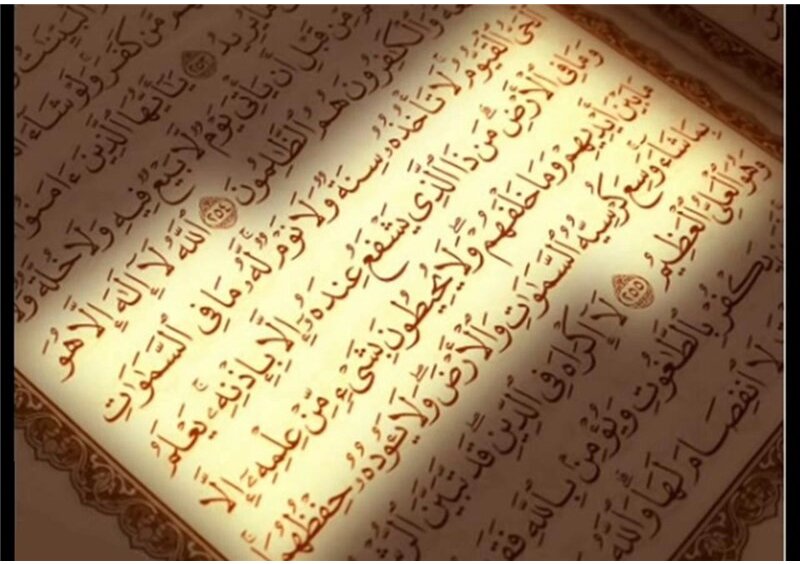 ٱلْبَيِّنَٰتُ
مَّن كَفَرَ وَلَوْ شَآءَ
مَا يُرِيدُ ٢٥٣ يَٰٓأَيُّهَا ٱلَّذِينَ ءَامَنُوٓا۟
مِّن قَبْلِ أَن يَأْتِىَ يَوْمٌ لَّا بَيْعٌ فِيهِ وَلَا خُلَّةٌ وَلَا
وَٱلْكَٰفِرُونَ هُمُ ٱلظَّٰلِمُونَ ٢٥٤ ٱللَّهُ لَآ إِلَٰهَ إِلَّا هُوَ
ٱلْحَىُّ ٱلْقَيُّومُ لَا تَأْخُذُهُۥ سِنَةٌ وَلَا نَوْمٌ لَّهُۥ مَا فِى ٱلسَّمَٰوَٰتِ
وَمَا فِى ٱلْأَرْضِ مَن ذَا ٱلَّذِى يَشْفَعُ عِندَهُۥٓ إِلَّا بِإِذْنِهِۦ يَعْلَمُ
مَا بَيْنَ أَيْدِيهِمْ وَمَا خَلْفَهُمْ وَلَا يُحِيطُونَ بِشَىْءٍ مِّنْ عِلْمِهِۦٓ إِلَّا
بِمَا شَآءَ وَسِعَ كُرْسِيُّهُ ٱلسَّمَٰوَٰتِ وَٱلْأَرْضَ وَلَا يَـُٔودُهُۥ حِفْظُهُمَا
وَهُوَ ٱلْعَلِىُّ ٱلْعَظِيمُ ٢٥٥ لَآ إِكْرَاهَ فِى ٱلدِّينِ قَد تَّبَيَّنَ ٱلرُّشْدُ
يَكْفُرْ بِٱلطَّٰغُوتِ وَيُؤْمِنۢ بِٱللَّهِ فَقَدِ
لَا ٱنفِصَامَ لَهَا وَٱللَّهُ